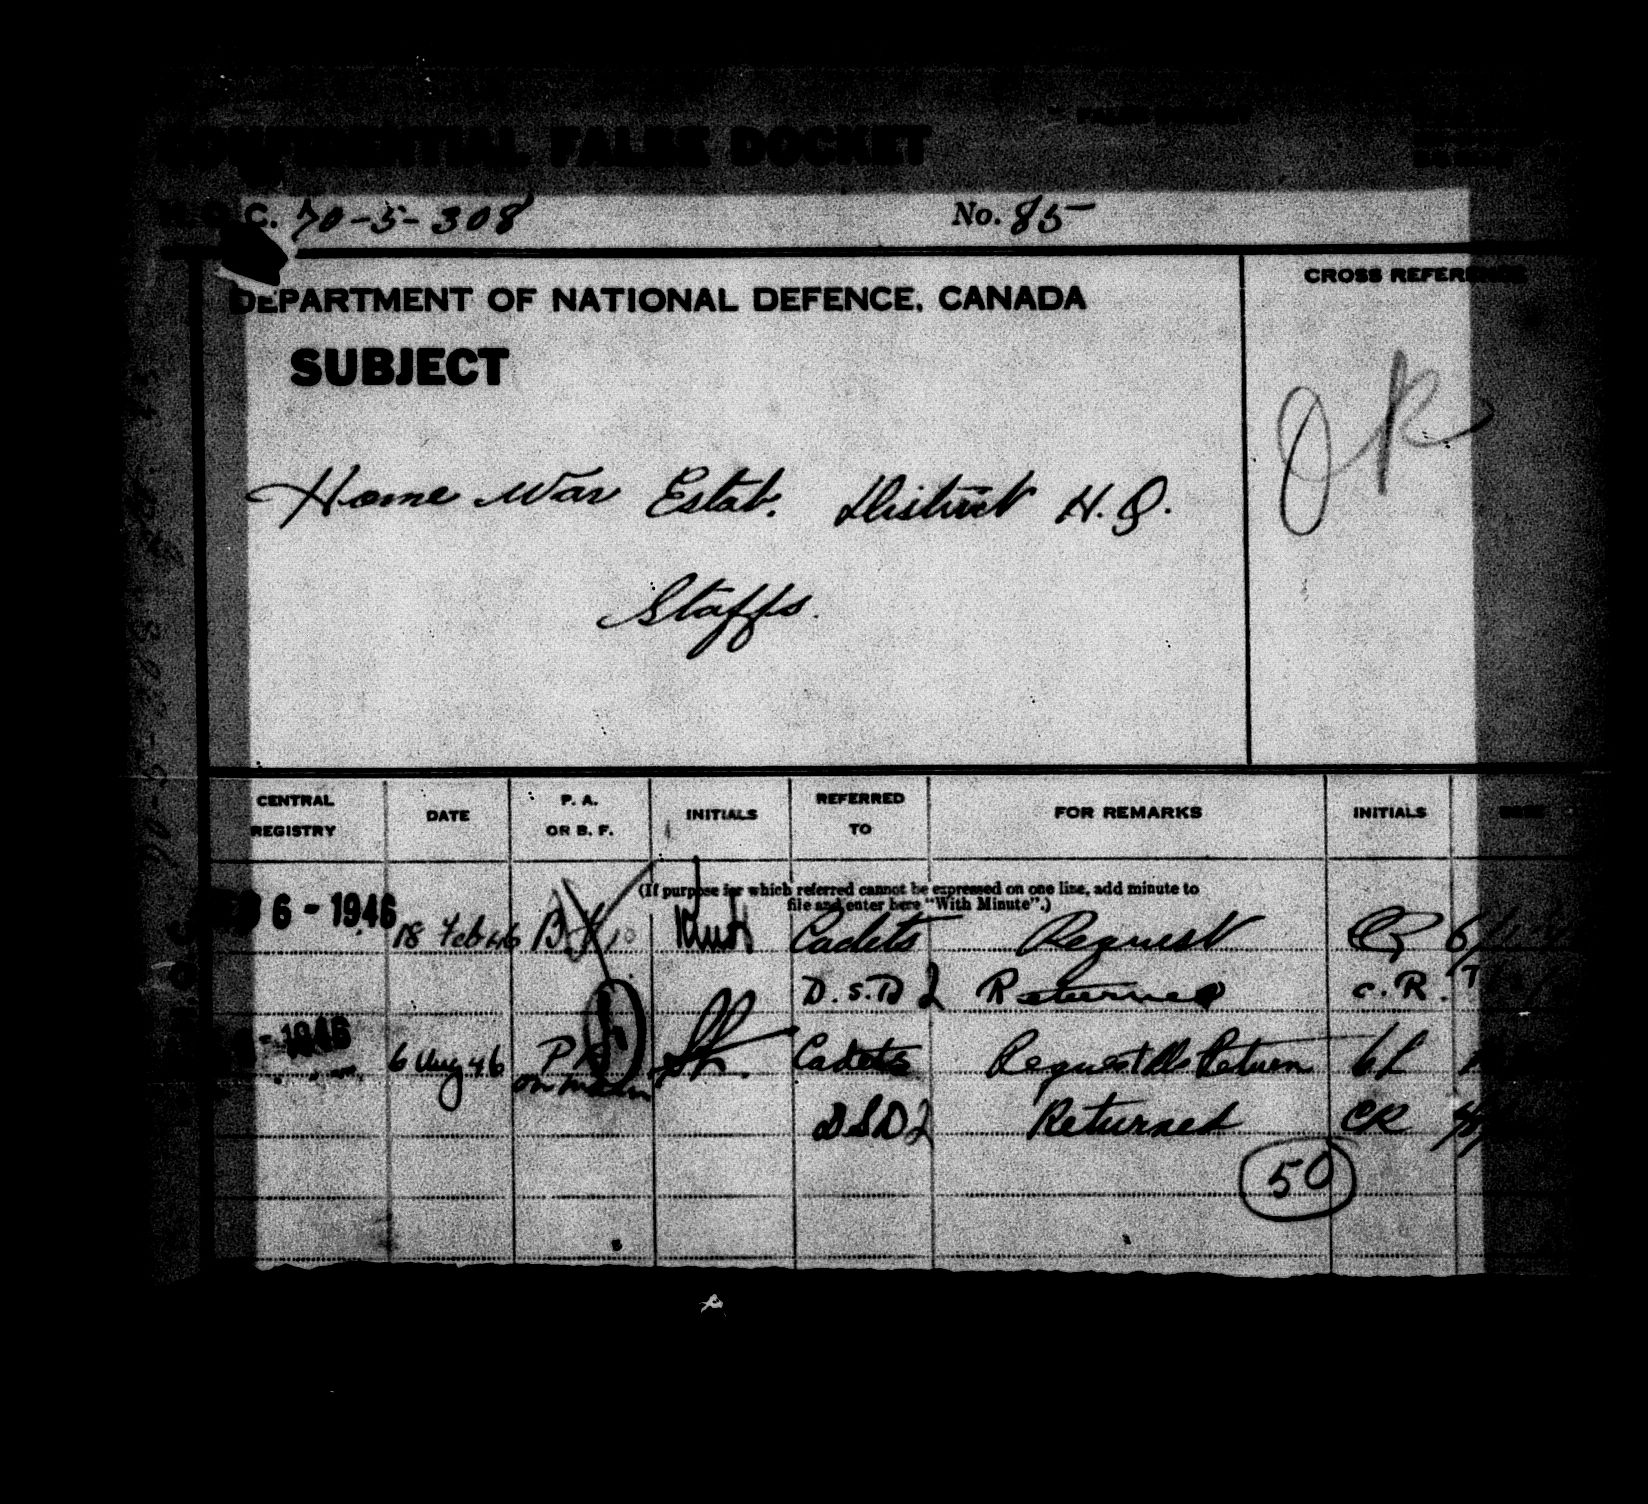 CONFIDENTIAL FALSE DOCKET
H.Q.C. 70-5-308 No. 85
DEPARTMENT OF NATIONAL DEFENCE, CANADA
CROSS REFERENCE
SUBJECT
OK
Home War Estab. District H.Q.
Staffs.
CENTRAL REGISTRY DATE P. A. OR B. F. INITIALS REFERRED TO FOR REMARKS INITIALS DATE
(If purpose for which referred cannot be expressed on one line, add minute to
file and enter here "With Minute".)
FEB 6 - 1946 18 Feb 46 B.F. Cadets Request
D.S.D 2 Returned C.R.
- 1946 6 Aug 46 P.A. Cadets Request Return
on main
DSD2 Returned CR
50